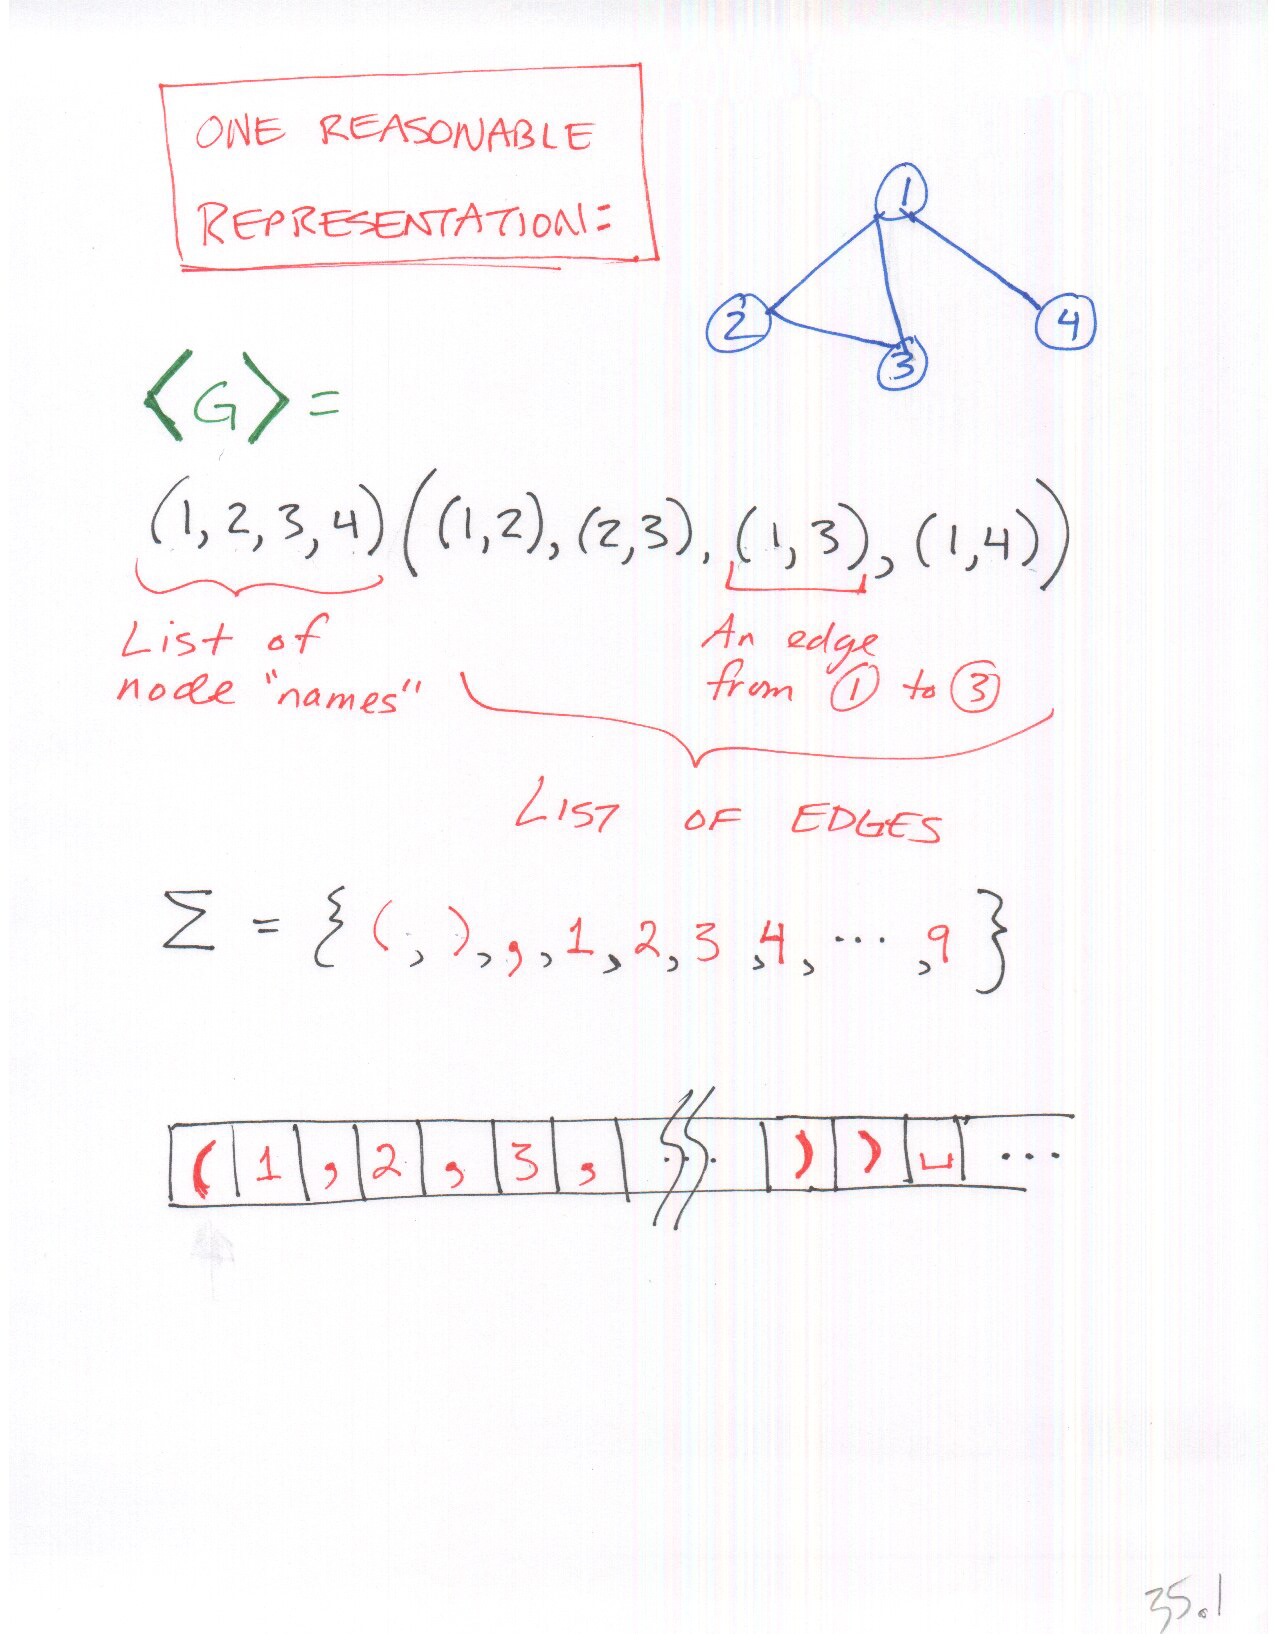 ONE REASONABLE
REPRESENTATION:
1
2
3
4
⟨G⟩ =
(1, 2, 3, 4) ((1,2), (2,3), (1,3), (1,4))
List of
node "names"
An edge
from ① to ③
LIST OF EDGES
Σ = { (, ), ,, 1, 2, 3, 4, ... , 9 }
( 1 , 2 , 3 , ... ) ) ␣ ...
35.1